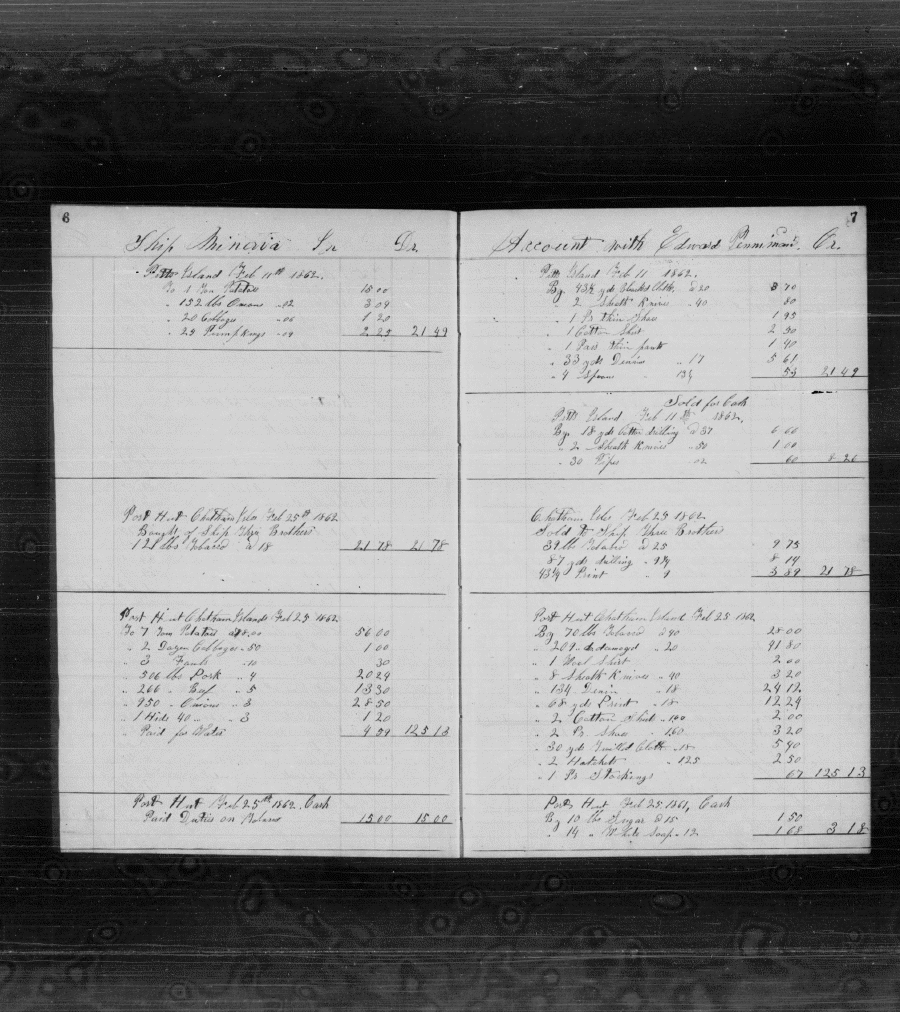 6
Ship Minerva Dr.
Pitts Island Feb 11th 1862.
To 1 Ton Potatoes 15 00
" 152 lbs Onions .02 3 04
" 20 Cabbages .06 1 20
" 25 Pumpkings .09 2 25 21 49
Port Hunt Chatham Isles Feb 25th 1862
Bought of Ship Three Brothers
121 lbs Tobacco @ 18 21 78 21 78
Port Hunt Chatham Islands Feb 25 1862
To 7 Tons Potatoes @ 8.00 56 00
" 2 Dozen Cabbages .50 1 00
" 3 .10 30
" 506 lbs Pork " 4 20 24
" 266 " Beef " 5 13 30
" 950 " Onions " 3 28 50
" 1 Hide 40 " " 3 1 20
" Paid for 4 59 125 13
Port Hunt Feb 25th 1862. Cash
Paid Duties on 15 00 15 00
7
Account with Edward Penniman. Cr.
Pitts Island Feb 11 1862.
By 43½ yds @ 20 8 70
" 2 Sheath Knives " 40 80
" 1 Pr thin Shoes 1 95
" 1 Cotton Shirt 2 50
" 1 Pair thin pants 1 40
" 33 yds Denim " 17 5 61
" 4 Spoons 13½ 53 21 49
Sold for Cash
Pitts Island Feb 11th 1862.
By 18 yds Cotton drilling @ 37 6 66
" 2 Sheath Knives " 50 1 00
" 30 Pipes 02 60 8 26
Chatham Isles Feb 25 1862
Sold to Ship Three Brothers
39 lbs Tobacco @ 25 9 75
87 yds drilling 8 14
43¼ Print " 9 3 89 21 78
Port Hunt Chatham Island Feb 25 1862
By 70 lbs Tobacco @ 40 28 00
" 209 " damaged " 20 41 80
" 1 Wool Shirt 2 00
" 8 Sheath Knives " 40 3 20
" 134 Denim " 18 24 12
" 68 yds Print " 18 12 24
" 2 Cotton Shirts " 100 2 00
" 2 Pr Shoes " 160 3 20
" 30 yds Twilled Cloth " 18 5 40
" 2 Hatchets " 125 2 50
" 1 Pr Stockings 67 125 13
Port Hunt Feb 25 1861, Cash
By 10 lbs Sugar @ 15 1 50
" 14 " White Soap " 12 1 68 3 18